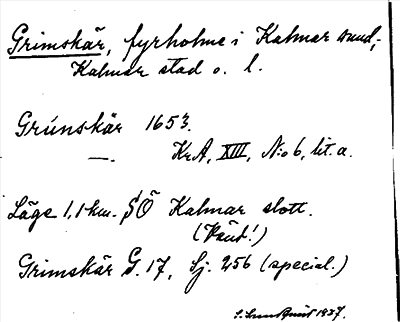 Grimskär, fyrholme i Kalmar sund,
Kalmar stad o. l.
Grúnskär 1653.
—. KrA, XIII, N:o 6, lit. a.
Läge 1,1 km. SÖ Kalmar slott.
(Vänd!)
Grimskär G. 17, Sj. 256 (special.)
1937.